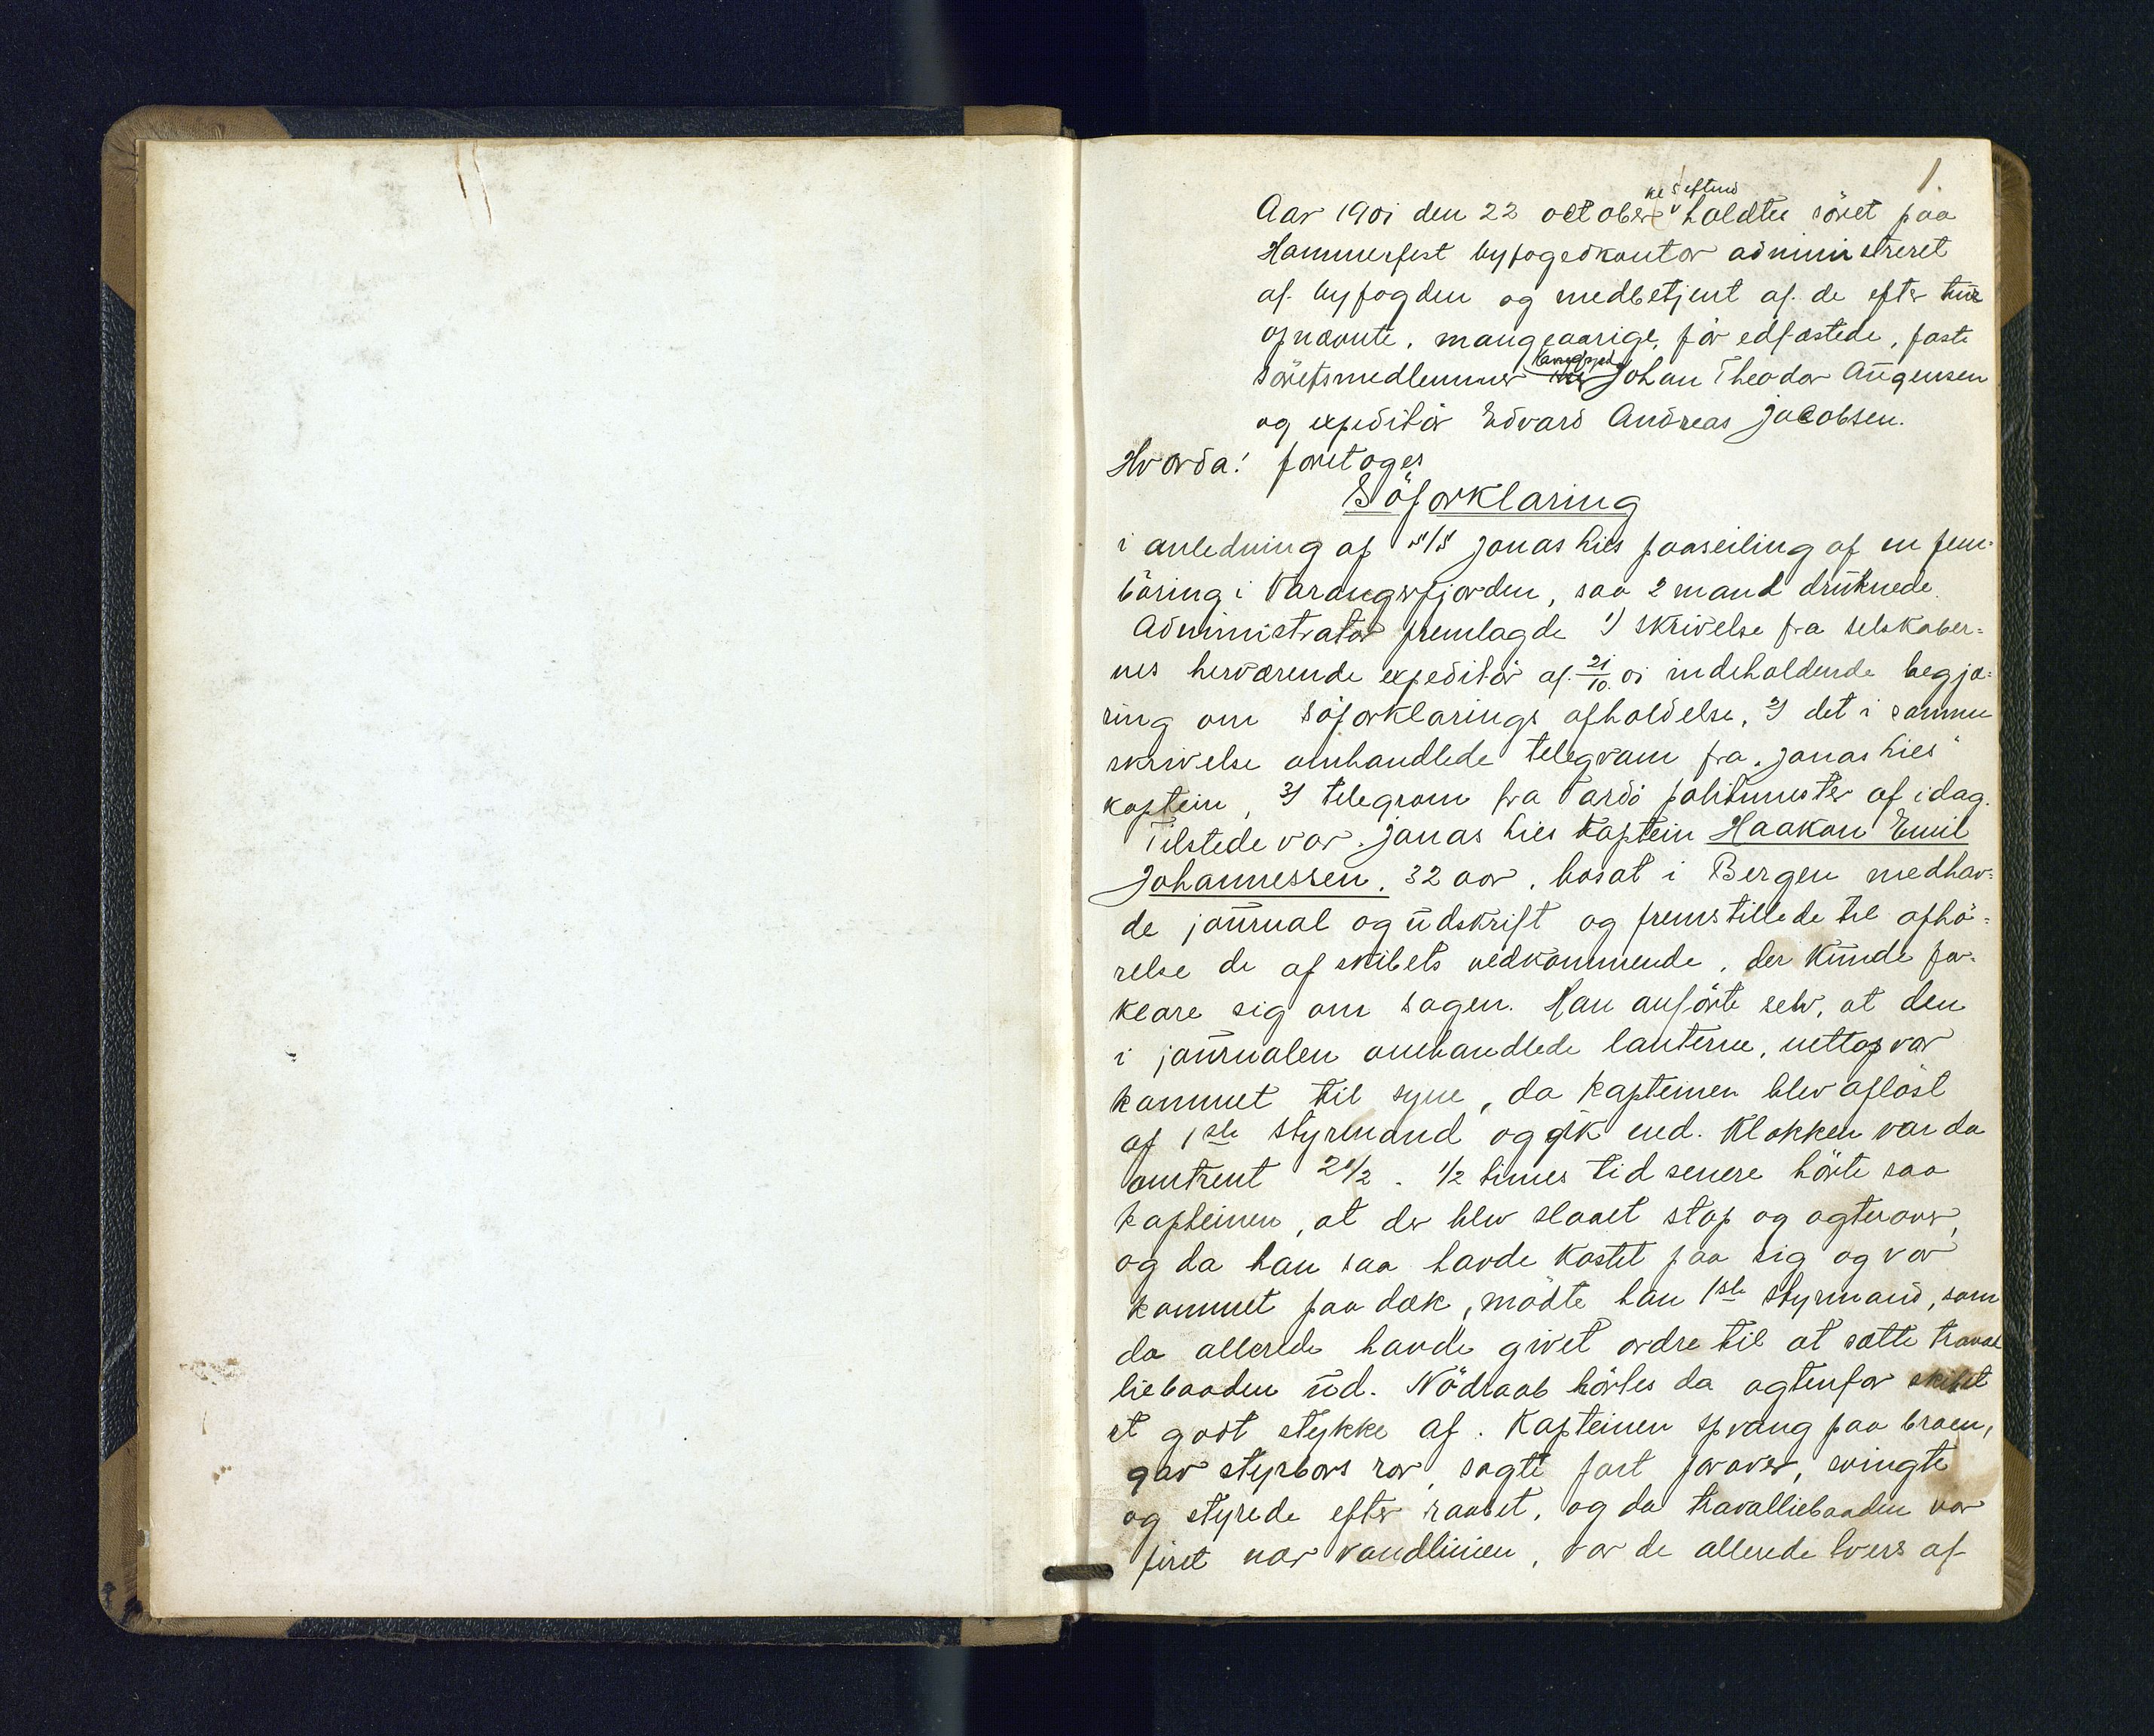 1.
kl 5 eftmd
Aar 1901 den 22 october holdtes söret paa
Hammerfest byfogedkontor administreret
af byfogden og medbetjent af de efter tur
opnævnte, mangeaarige, før edfæstede, faste
söretsmedlemmer Johan Theodor Aügensen
og expeditör Edvard Andreas Jacobsen.
Hvorda! foretoges
Söforklaring
i anledning af s/s Jonas Lies paaseiling af en fem-
böring i Varangerfjorden, saa 2 mand drüknede.
Administrator fremlagde 1) skrivelse fra selskaber-
nes herværende expeditör af 21/10 01 indeholdende begjæ-
ring om söforklarings afholdelse, 2) det i samme
skrivelse omhandlede telegram fra "Jonas Lies"
kaptein, 3) telegram fra Vardö politimester af idag.
Tilstede var Jonas Lies kaptein Haakon Emil
Johannessen, 32 aar, bosat i Bergen medhav-
de joürnal og üdskrift og fremstillede til afhö-
relse de af skibets vedkommende, der künde for-
klare sig om sagen. Han anförte selv, at den
i joürnalen omhandlede lanterne, nettop var
kommet til syne, da kapteinen blev aflöst
af 1ste styrmand og gik ned. Klokken var da
omtrent 2 1/2. 1/2 times tid senere hörte saa
kapteinen, at der blev slaaet stop og agterover,
og da han saa havde kastet paa sig og var
kommet paa dæk, mödte han 1ste styrmand, som
da allerede havde givet ordre til at sætte traval
liebaaden üd. Nödraab hörtes da agtenfor skibet
et godt stykke af. Kapteinen sprang paa broen,
gav styrbors ror, sagte fart forover, svingte
og styrede efter raabet, og da travalliebaaden var
firet nær vandlinien, var de allerede tvers af